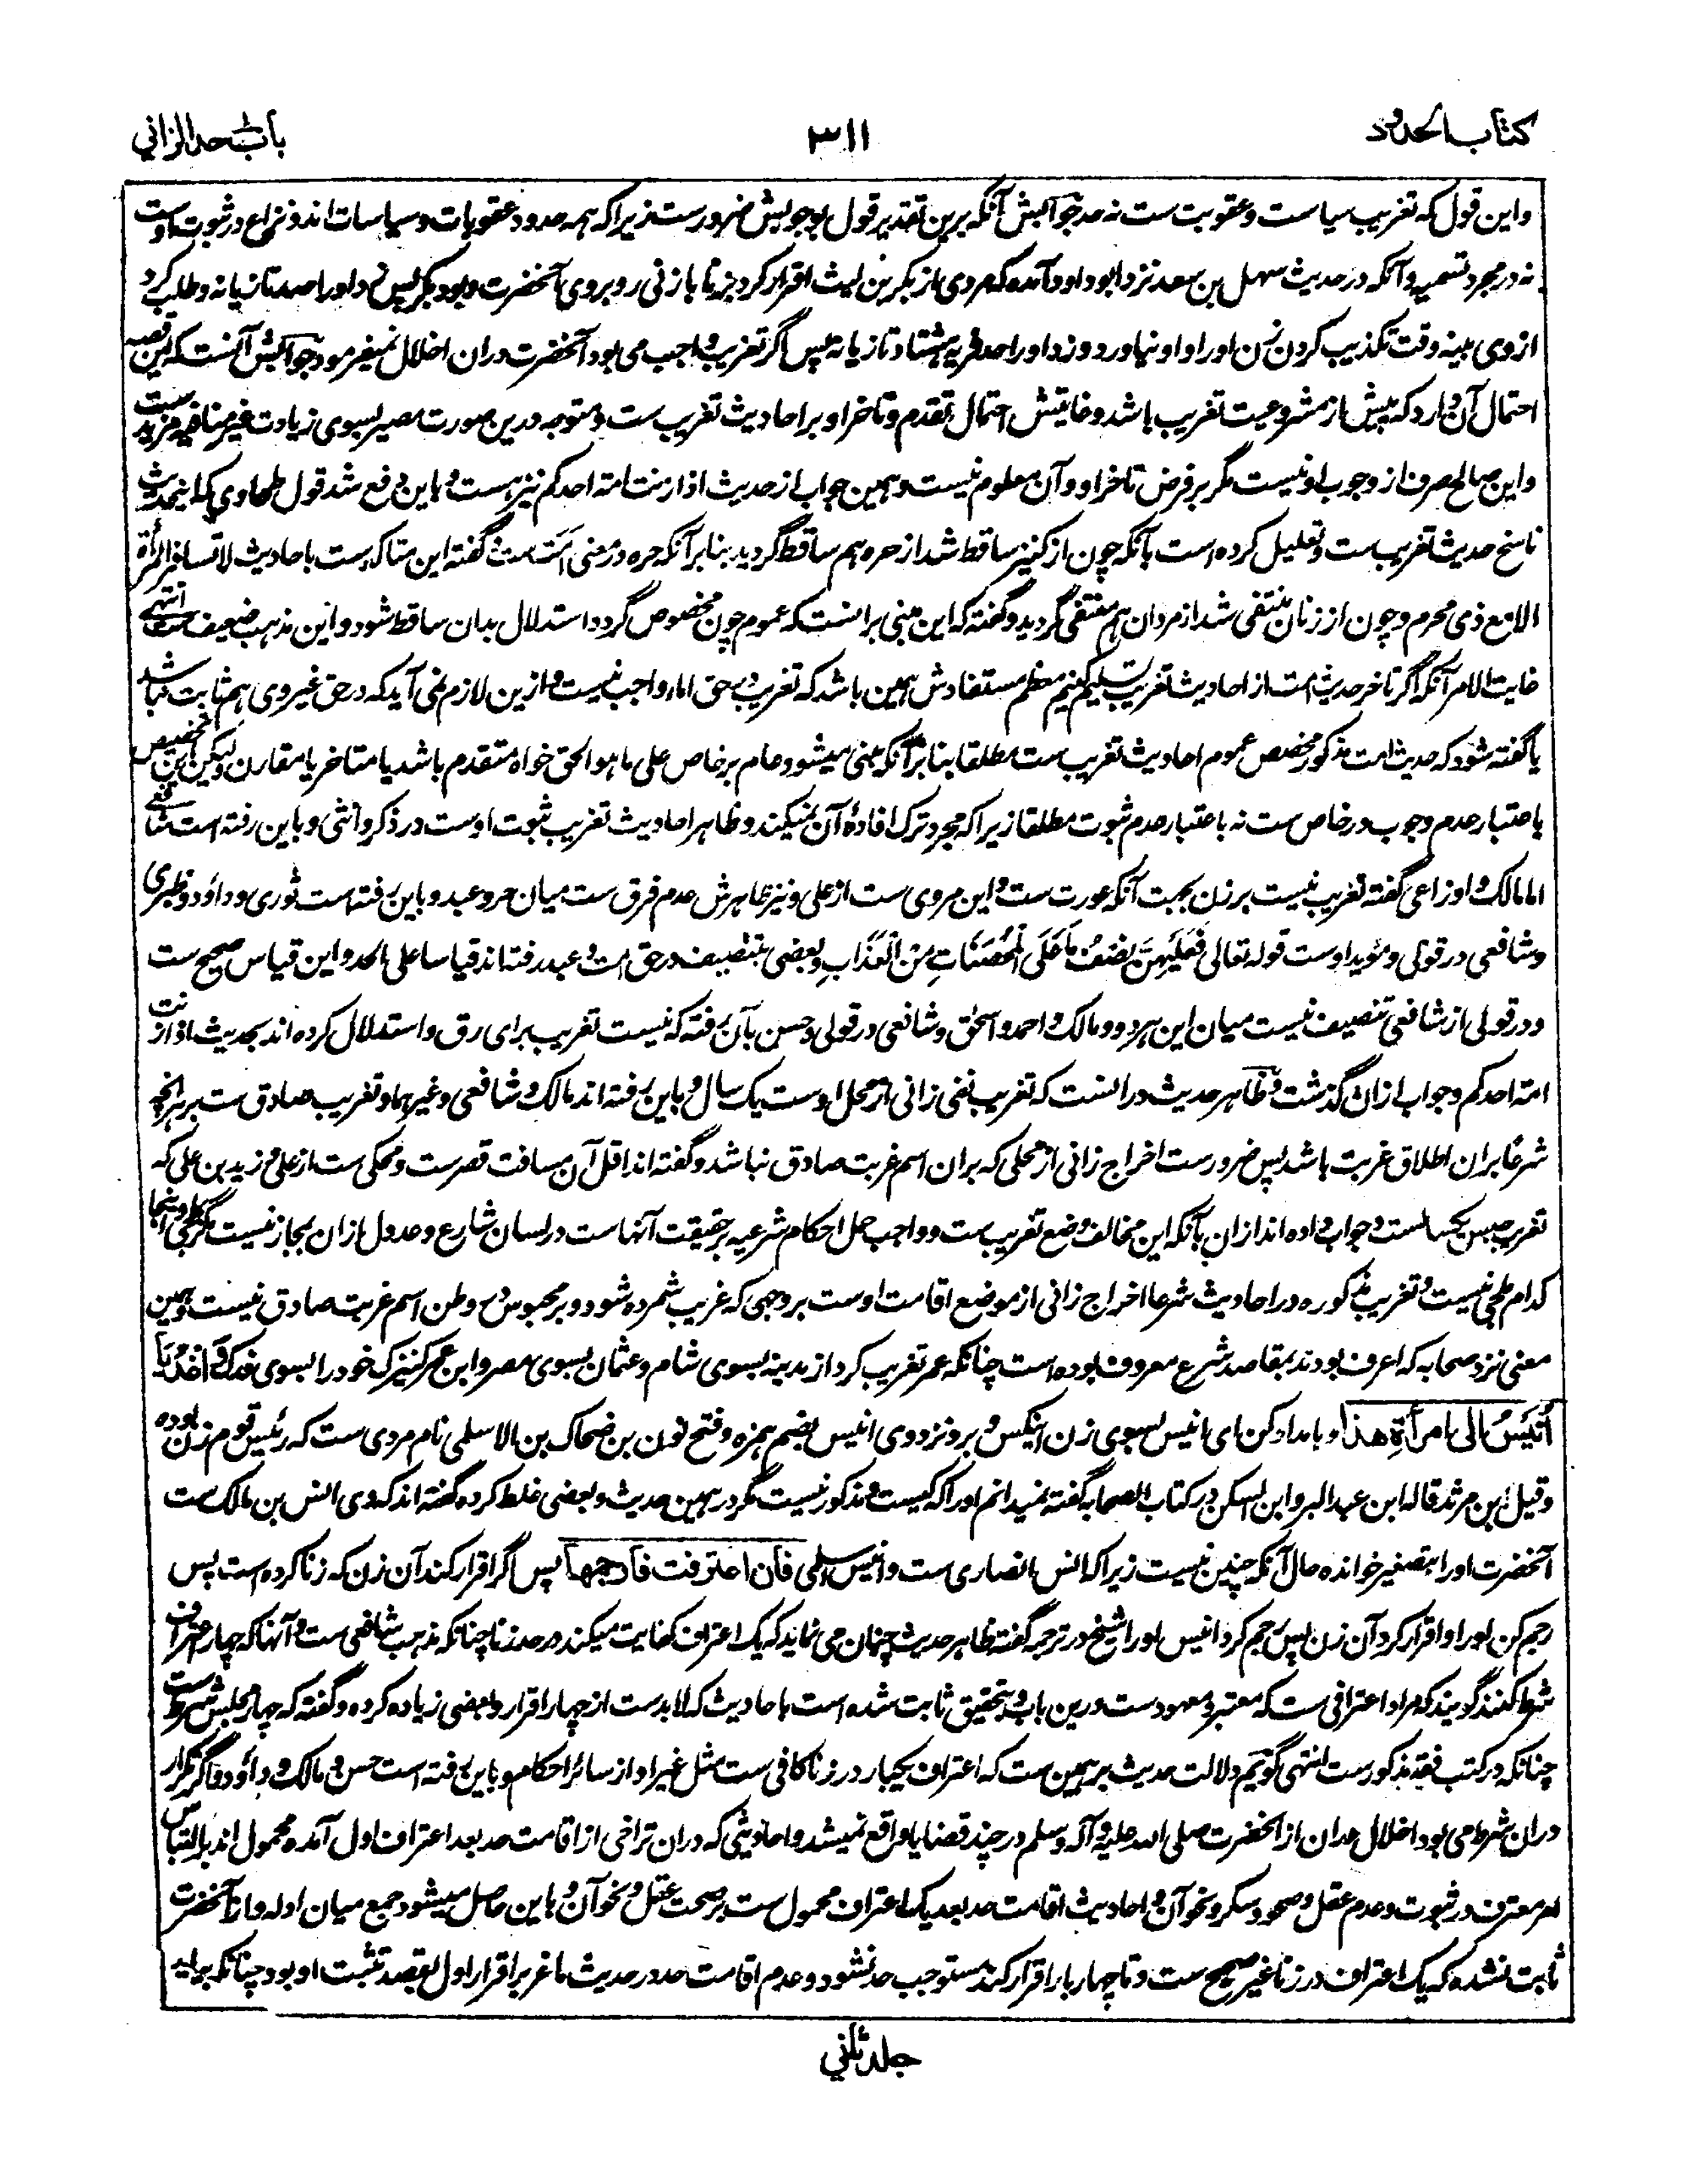 کتاب الحدود
۳۱۱
باب حد الزاني
واین قول که تغریب سیاست وعقوبت ست نه حد جوابش آنکه برین تقدیر قول بوجوبش ضرورست زیرا که همه حدود عقوبات وسیاسات اند ونزاع در ثبوت اوست
نه در مجرد تسمیه وآنکه در حدیث سهل بن سعد نزد ابو داود آمده که مردی از بکر بن لیث اقرار کرد بزنا با زنی روبروی آنحضرت وبود بکر پس زد او را صد تازیانه وطلب کرد
از وی بینه وقت تکذیب کردن زن او را واو نیاورد وزد او را حد فریه هشتاد تازیانه پس اگر تغریب واجب می بود آنحضرت دران اخلال نمیفرمود جوابش آنست که این قصه
احتمال آن دارد که پیش از مشروعیت تغریب باشد وغایتش احتمال تقدم وتاخر او بر احادیث تغریب ست ومتوجه درین صورت مصیر بسوی زیادت غیر منافیه مزید ست
واین صالح صرف از وجوب او نیست مگر بر فرض تاخر او وآن معلوم نیست وهمین جواب از حدیث اذا زنت امة احدکم نیز هست وباین دفع شد قول طحاوی که اینحدیث
ناسخ حدیث تغریب ست وتعلیل کرده است بآنکه چون از کنیز ساقط شد از حره هم ساقط گردید بنابر آنکه حره در معنی امت ست گفته این متاکد ست باحادیث لا تسافر المرأة
الا مع ذی محرم وچون از زنان منتفی شد از مردان هم منتفی گردید وگفته که این مبنی برانست که عموم چون مخصوص گردد استدلال بدان ساقط شود واین مذهب ضعیف ست انتهی
غایت الامر آنکه اگر تاخر حدیث امت از احادیث تغریب تسلیم کنیم معظم مستفادش همین باشد که تغریب در حق اماء واجب نیست وازین لازم نمی آید که در حق غیر وی هم ثابت نباشد
یا گفته شود که حدیث امت مذکور مخصص عموم احادیث تغریب ست مطلقا بنابر آنکه مبنی میشود عام بر خاص علی ما هو الحق خواه متقدم باشد یا متاخر یا مقارن ولیکن این تخصیص
باعتبار عدم وجوب در خاص ست نه باعتبار عدم ثبوت مطلقا زیرا که مجرد ترک افادۀ آن نمیکند وظاهر احادیث تغریب ثبوت اوست در ذکر وانثی وباین رفته است شافعی
اما مالک واوزاعی گفته تغریب نیست بر زن بجهت آنکه عورت ست واین مروی ست از علی ونیز ظاهرش عدم فرق ست میان حر وعبد وباین رفته است ثوری وداؤد وطبری
وشافعی در قولی ومؤید اوست قوله تعالی فَعَلَیْهِنَّ نِصْفُ مَا عَلَی الْمُحْصَنَاتِ مِنَ الْعَذَابِ وبعضی بتنصیف در حق امت وعبد رفته اند قیاسا علی الحد واین قیاس صحیح ست
ودر قولی از شافعی تنصیف نیست میان این هر دو ومالک واحمد واسحٰق وشافعی در قولی وحسن بآن رفته که نیست تغریب برای رق واستدلال کرده اند بحدیث اذا زنت
امة احدکم وجواب ازان گذشت وظاهر حدیث درانست که تغریب نفی زانی از محل اوست یک سال وباین رفته اند مالک وشافعی وغیرهما وتغریب صادق ست بر هر آنچه
شرعا بران اطلاق غربت باشد پس ضرورست اخراج زانی از محلی که بران اسم غربت صادق نباشد وگفته اند اقل آن مسافت قصرست ومحکی ست از علی وزید بن علی که
تغریب حبس یکسالست وجواب داده اند ازان بآنکه این مخالف وضع تغریب ست وواجب حمل احکام شرعیه بر حقیقت آنهاست در لسان شارع وعدول ازان بمجاز نیست مگر بملجی واینجا
کدام ملجی نیست وتغریب مذکوره در احادیث شرعا اخراج زانی از موضع اقامت اوست بر وجهی که غریب شمرده شود وبر محبوس در وطن اسم غربت صادق نیست وهمین
معنی نزد صحابه که اعرف بودند بمقاصد شرع معروف بوده است چنانکه عمر تغریب کرد از مدینه بسوی شام وعثمان بسوی مصر وابن عمر کنیزک خود را بسوی فدک واغدُ یا
اُنَیْسُ الی امرأة هذا وبامداد کن ای انیس بسوی زن اینکس وبرو نزد وی انیس بضم همزه وفتح نون بن ضحاک بن الاسلمی نام مردی ست که رئیس قوم زن بوده
وقیل ابن مرثد قاله ابن عبدالبر وابن السکن در کتاب الصحابه گفته نمیدانم او را که کیست ومذکور نیست مگر در همین حدیث وبعضی غلط کرده گفته اند که وی انس بن مالک ست
آنحضرت او را بتصغیر خوانده حال آنکه چنین نیست زیرا که انس انصاری ست وانیس اسلمی فان اعترفت فارجمها پس اگر اقرار کند آن زن که زنا کرده است پس
رجم کن او را واقرار کرد آن زن پس رجم کرد انیس او را شیخ در ترجمه گفته ظاهر حدیث چنان می نماید که یک اعتراف کفایت میکند در حد زنا چنانکه مذهب شافعی ست وآنها که چهار اعتراف
شرط کنند گویند که مراد اعترافی ست که معتبر ومعهود ست درین باب وبتحقیق ثابت شده است باحادیث که لابد ست از چهار اقرار وبعضی زیاده کرده وگفته که چهار مجلس شرط ست
چنانکه در کتب فقه مذکورست انتهی گوئیم دلالت حدیث بر همین ست که اعتراف یکبار در زنا کافی ست مثل غیر او از سائر احکام وباین رفته است حسن ومالک وداؤد واگر تکرار
دران شرط می بود اخلال بدان از آنحضرت صلی الله علیه وآله وسلم در چند قضایا واقع نمیشد واحادیثی که دران تراخی از اقامت حد بعد اعتراف اول آمده محمول اند بر التباس
امر معترف در ثبوت وعدم عقل وصحو وسکر ونحو آن واحادیث اقامت حد بعد یک اعتراف محمول ست بر صحت عقل ونحو آن وباین حاصل میشود جمع میان ادله واز آنحضرت
ثابت نشده که یک اعتراف در زنا غیر صحیح ست وتا چهار بار اقرار کند مستوجب حد نشود وعدم اقامت حد در حدیث ماعز بر اقرار اول بقصد تثبت او بود چنانکه
جلد ثاني